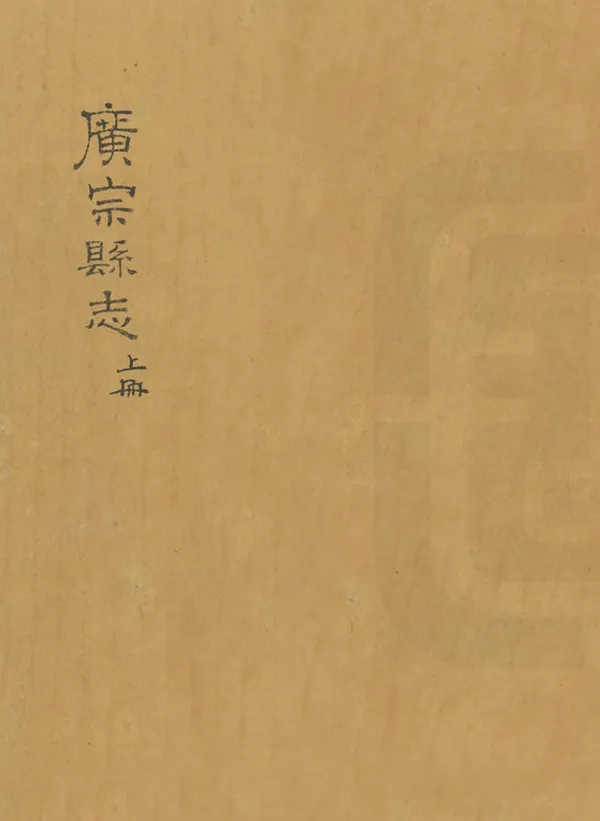 廣宗縣志
上冊